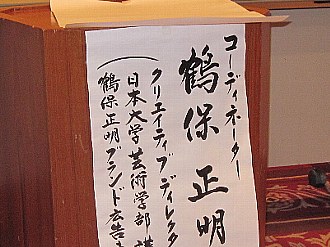 コーディネーター
鶴保正明
クリエイティブディレクタ
(日本大学芸術学部講
鶴保正明ブランド広告